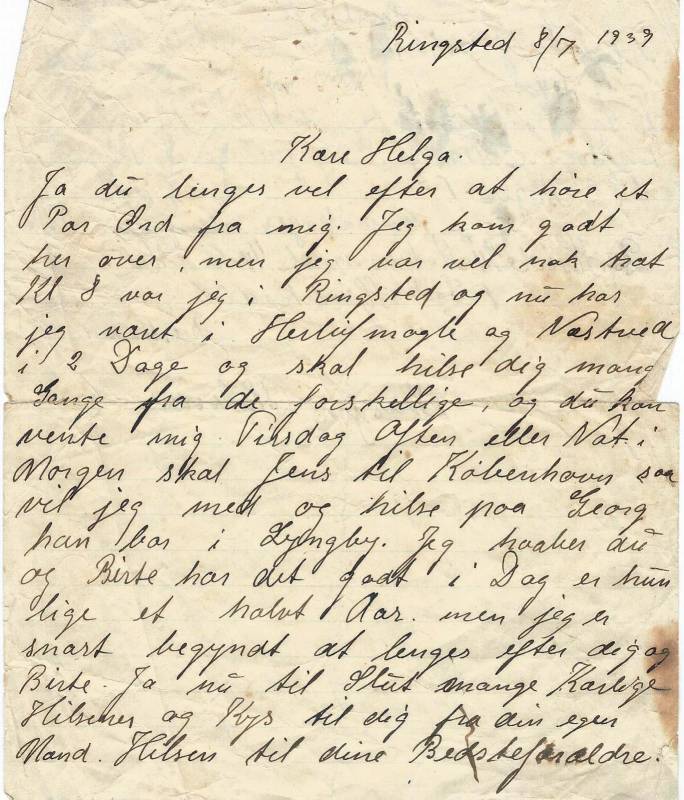 Ringsted 8/7 1939
Kære Helga.
Ja du lenges vel efter at høre et
Par Ord fra mig. Jeg kom godt
her over, men jeg var vel nok træt
Kl 8 var jeg i Ringsted og nu har
jeg været i Herlufmagle og Næstved
i 2 Dage og skal hilse dig mang
Gange fra de forskellige, og du kan
vente mig Tirsdag Aften eller Nat. i
Morgen skal Jens til København saa
vil jeg med og hilse paa Georg
han bor i Lyngby. Jeg haaber du
og Birte har det godt i Dag er hun
lige et halvt Aar. men jeg er
snart begyndt at lenges efter dig og
Birte. Ja nu til Slut mange Kærlige
Hilsner og Kys til dig fra din egen
Mand. Hilsen til dine Bedsteforældre.